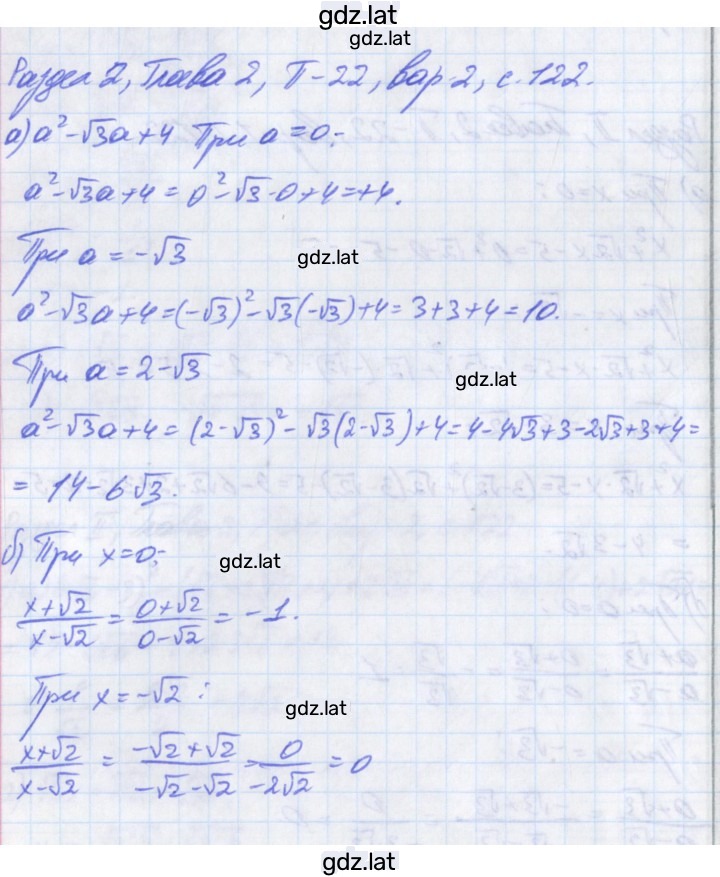 gdz.lat
gdz.lat
Раздел 2, Глава 2, П-22, вар.2, с.122.
а) a² - √3a + 4 При a = 0:
a² - √3a + 4 = 0² - √3·0 + 4 = +4.
При a = -√3
gdz.lat
a² - √3a + 4 = (-√3)² - √3(-√3) + 4 = 3 + 3 + 4 = 10.
При a = 2 - √3
gdz.lat
a² - √3a + 4 = (2 - √3)² - √3(2 - √3) + 4 = 4 - 4√3 + 3 - 2√3 + 3 + 4 =
= 14 - 6√3.
б) При x = 0:
gdz.lat
(x + √2)/(x - √2) = (0 + √2)/(0 - √2) = -1.
При x = -√2:
gdz.lat
(x + √2)/(x - √2) = (-√2 + √2)/(-√2 - √2) = 0/(-2√2) = 0
gdz.lat